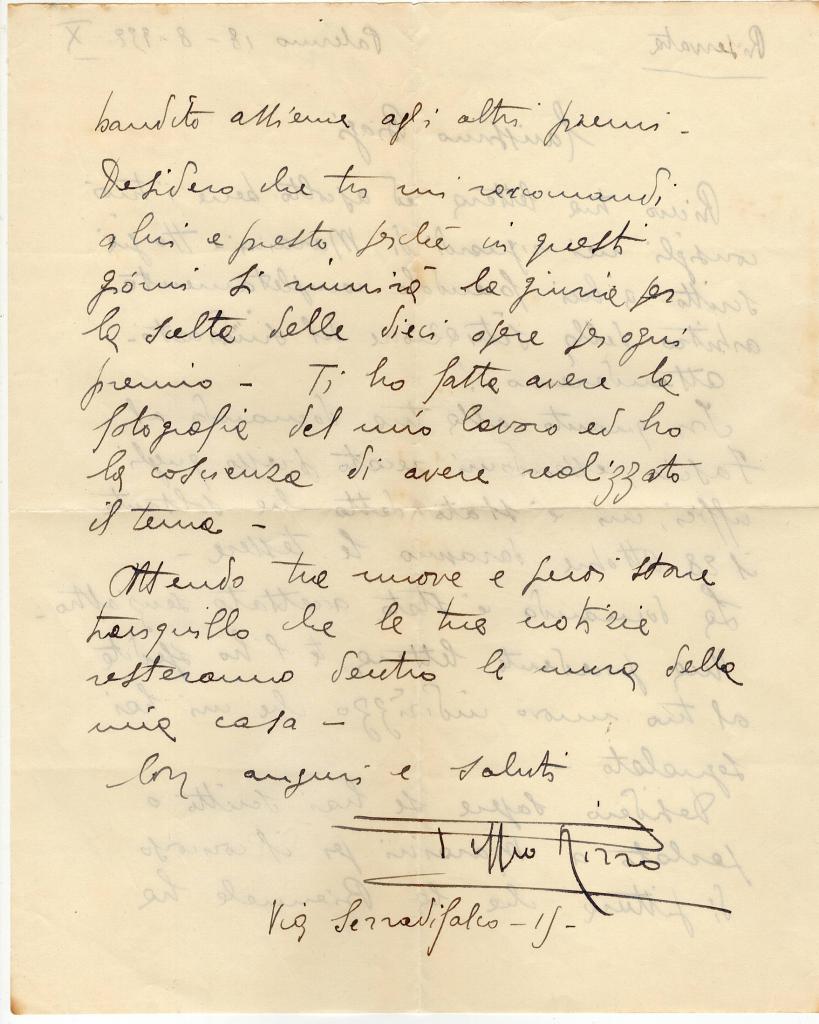 bandito assieme agli altri premi -
Desidero che tu mi raccomandi
a lui e presto perchè in questi
giorni si riunirà la giuria per
la scelta delle dieci opere per ogni
premio - Ti ho fatto avere la
fotografia del mio lavoro ed ho
la coscienza di avere realizzato
il tema -
Attendo tue nuove e puoi stare
tranquillo che le tue notizie
resteranno dentro le mura della
mia casa -
Con auguri e saluti
Pippo Rizzo
Via Serradifalco - 15 -